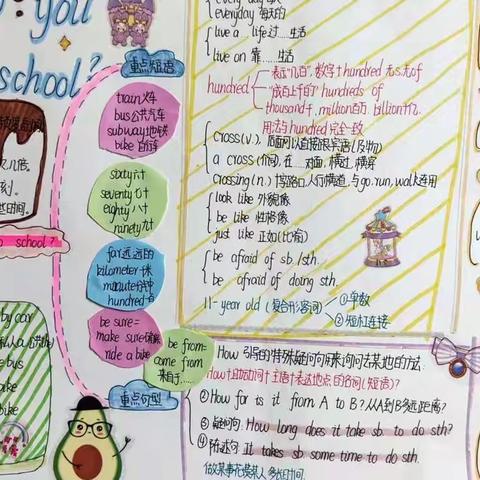 you
school?
重点短语
train火车
bus公共汽车
subway地铁
bike 自行车
sixty六十
seventy七十
eighty八十
ninety九十
far远的
kilometer千米
minute分钟
hundred
be sure=
make sure
ride a bike
be from=
come from
来自于……
重点句型
school?
by car
bus
bike
bike
everyday 每天的
live a … life过……生活
live on 靠……生活
hundred
表示"几百",数字+hundred 无s无of
"成百上千的" hundreds of
thousand千, million百万, billion十亿
用法与hundred完全一致
cross(v.),后面可以直接跟宾语(及物)
a cross(介词),在……对面,横过,横穿
crossing(n.)十字路口,人行横道,与go,run,walk连用
look like 外貌像
be like 性格像
just like 正如(比喻)
be afraid of sb./sth.
be afraid of doing sth.
11-year old (复合形容词)
①单数
②短杠连接
How 引导的特殊疑问句用来询问去某地的方法
How+助动词+主语+表达地点的名词(短语)?
②How far is it from A to B?从A到B多远距离?
③疑问句: How long does it take sb to do sth?
④陈述句 It takes sb some time to do sth.
做某事花费某人多长时间.